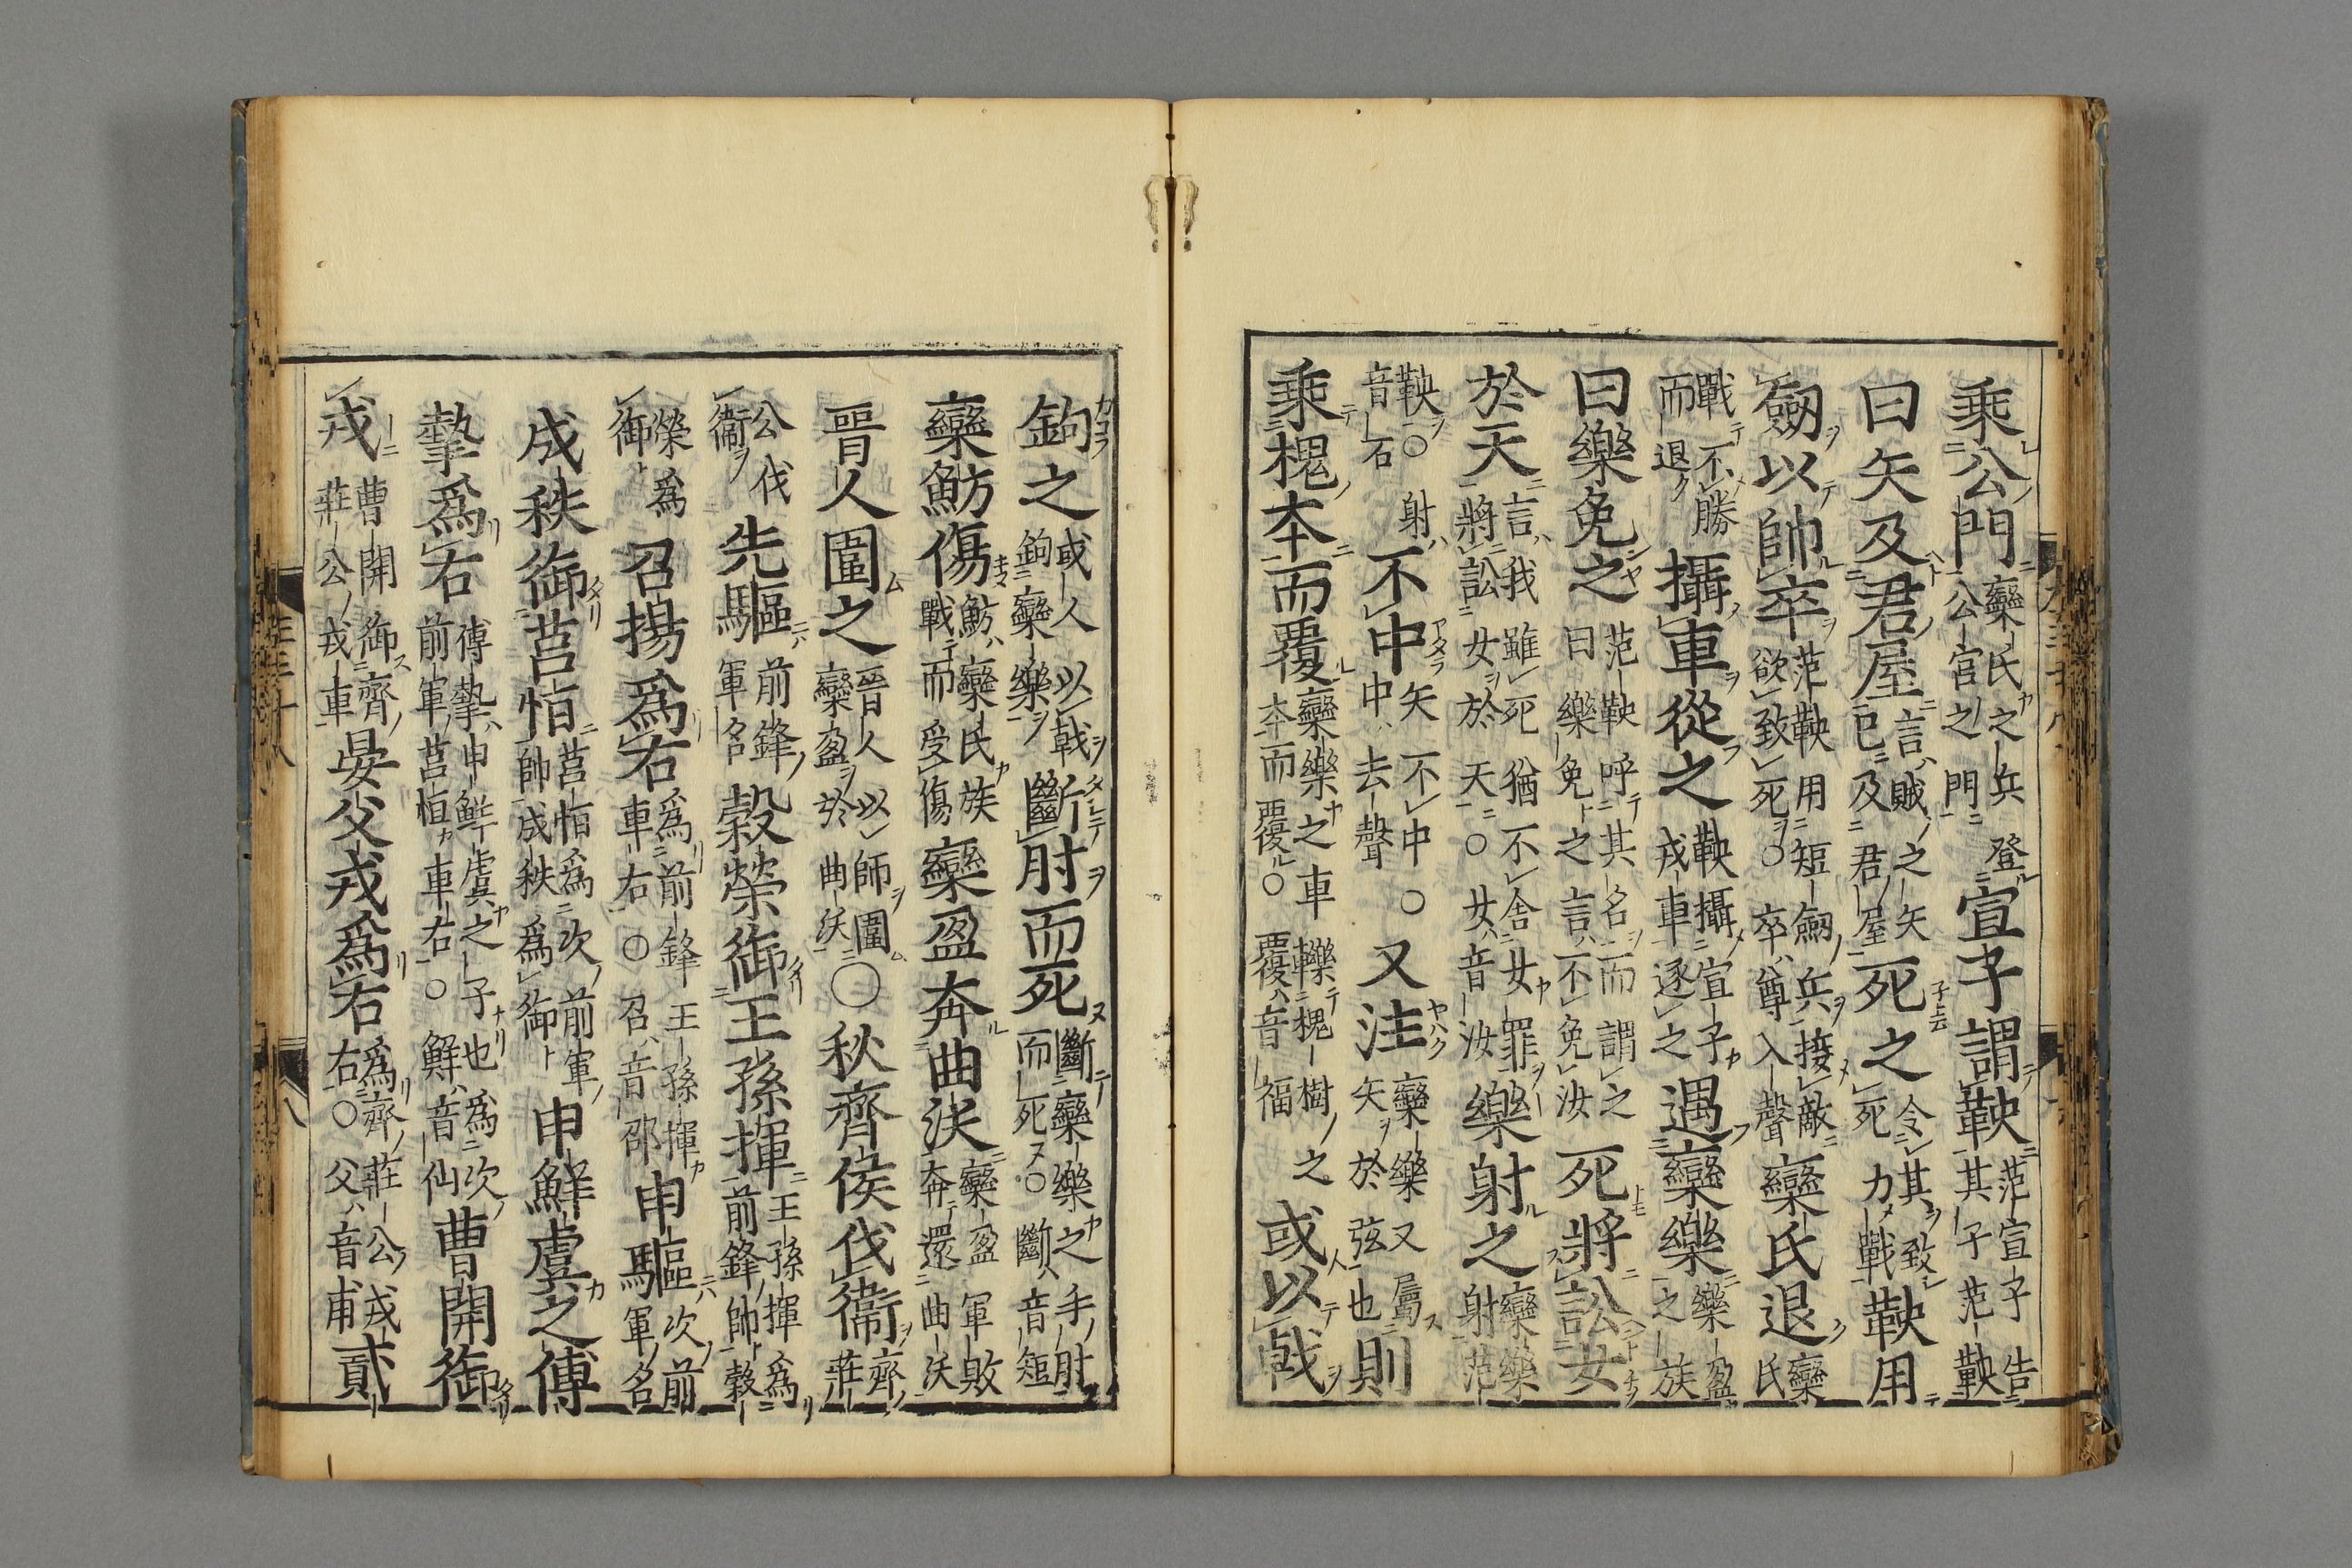 乘公門欒氏之兵登公宮之門宣子謂鞅范宣子告其子范鞅
曰矢及君屋言賊之矢已及君屋死之令其致死力戰鞅用
劔以帥卒范鞅用短劔兵接敵欲致死○卒尊入聲欒氏退欒氏
戰不勝而退攝車從之鞅攝宣子戎車逐之遇欒樂樂盈之族
曰樂免之范鞅呼其名而謂之曰樂免之言不免汝死將訟女
於天言我雖死猶不舍女罪將訟女於天○女音汝樂射之欒樂射范
鞅○射音石不中矢不中○中去聲又注欒樂又屬矢於弦也則
乘槐本而覆欒樂之車轢槐樹之本而覆○覆音福或以戟
鉤之或人以戟鉤欒樂斷肘而死斷欒樂之手肘而死○斷音短
欒魴傷魴欒氏族戰而受傷欒盈奔曲沃欒盈軍敗奔還曲沃
晉人圍之晉人以師圍欒盈於曲沃○秋齊侯伐衞齊莊
公伐衞先驅前鋒軍名穀榮御王孫揮王孫揮爲前鋒帥穀
榮爲御召揚爲右爲前鋒王孫揮車右○召音邵申驅次前軍名
成秩御莒恒莒恒爲次前軍帥成秩爲御申鮮虞之傅
摯爲右傅摯申鮮虞之子也爲次前軍莒恒車右○鮮音仙曹開御
戎曹開御齊莊公戎車晏父戎爲右爲齊莊公戎右○父音甫貳